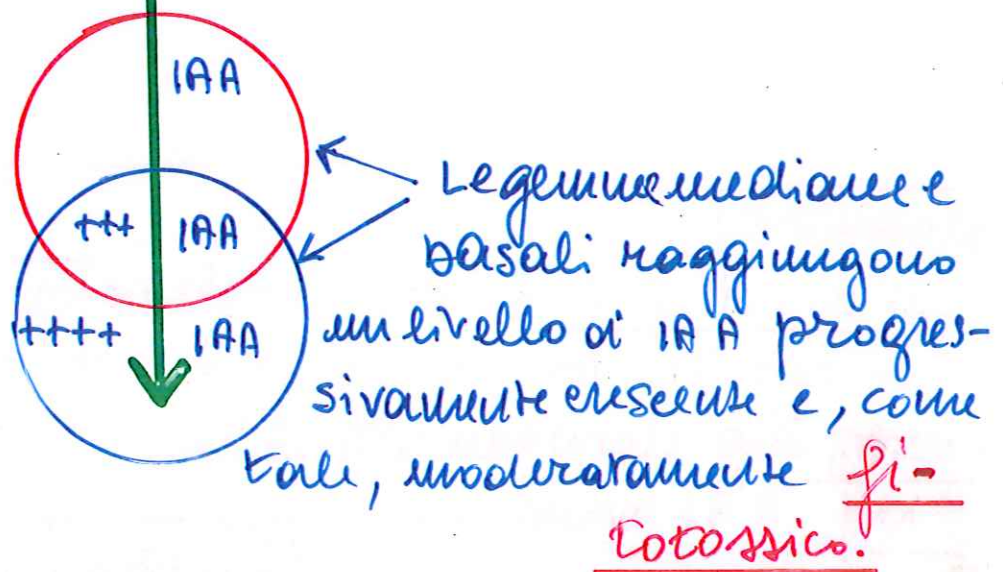 IAA
+++ IAA
++++ IAA
Le gemme mediane e
basali raggiungono
un livello di IAA progres-
sivamente crescente e, come
tale, moderatamente fi-
totossico.